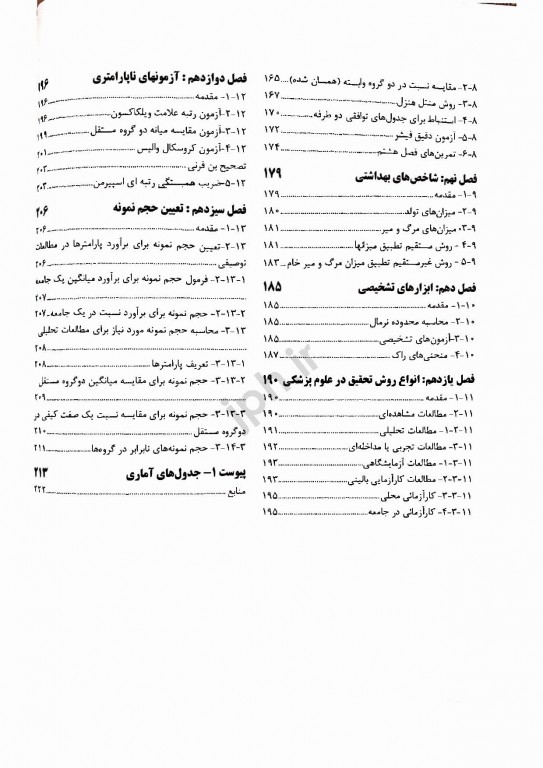 ۸-۲- مقایسه نسبت در دو گروه وابسته (همسان شده)....۱۶۵
۸-۳- روش منتل هنزل.....۱۶۷
۸-۴- استنباط برای جدول‌های توافقی دو طرفه.....۱۷۰
۸-۵- آزمون دقیق فیشر.....۱۷۲
۸-۶- تمرین‌های فصل هشتم.....۱۷۴
فصل نهم: شاخص‌های بهداشتی ۱۷۹
۹-۱- مقدمه.....۱۷۹
۹-۲- میزان‌های تولد.....۱۸۰
۹-۳- میزان‌های مرگ و میر.....۱۸۱
۹-۴- روش مستقیم تطبیق میزانها.....۱۸۱
۹-۵- روش غیرمستقیم تطبیق میزان مرگ و میر خام...۱۸۳
فصل دهم: ابزارهای تشخیصی ۱۸۵
۱۰-۱- مقدمه.....۱۸۵
۱۰-۲- محاسبه محدوده نرمال.....۱۸۵
۱۰-۳-آزمون‌های تشخیصی.....۱۸۵
۱۰-۴- منحنی‌های راک.....۱۸۷
فصل یازدهم: انواع روش تحقیق در علوم پزشکی ۱۹۰
۱۱-۱- مقدمه.....۱۹۰
۱۱-۲- مطالعات مشاهده‌ای.....۱۹۰
۱۱-۲-۱- مطالعات تحلیلی.....۱۹۱
۱۱-۳- مطالعات تجربی یا مداخله‌ای.....۱۹۲
۱۱-۳-۱- مطالعات آزمایشگاهی.....۱۹۳
۱۱-۳-۲- مطالعات کارآزمایی بالینی.....۱۹۳
۱۱-۳-۳- کارآزمائی محلی.....۱۹۵
۱۱-۳-۴- کارآزمائی در جامعه.....۱۹۵
فصل دوازدهم: آزمونهای ناپارامتری ۱۹۶
۱۲-۱- مقدمه.....۱۹۶
۱۲-۲-آزمون رتبه علامت ویلکاکسون.....۱۹۶
۱۲-۳-آزمون مقایسه میانه دو گروه مستقل.....۱۹۹
۱۲-۴-آزمون کروسکال والیس.....۲۰۱
تصحیح بن فرنی.....۲۰۳
۱۲-۵-ضریب همبستگی رتبه ای اسپیرمن.....۲۰۳
فصل سیزدهم: تعیین حجم نمونه ۲۰۶
۱۳-۱- مقدمه.....۲۰۶
۱۳-۲-تعیین حجم نمونه برای برآورد پارامترها در مطالعات
توصیفی.....۲۰۶
۱۳-۲-۱- فرمول حجم نمونه برای برآورد میانگین یک جامعه
.....۲۰۷
۱۳-۲-۲- حجم نمونه برای برآورد نسبت در یک جامعه..۲۰۷
۱۳-۳- محاسبه حجم نمونه مورد نیاز برای مطالعات تحلیلی
.....۲۰۸
۱۳-۳-۱- تعریف پارامترها.....۲۰۸
۱۳-۳-۲- حجم نمونه برای مقایسه میانگین دوگروه مستقل
.....۲۰۹
۱۳-۳-۳- حجم نمونه برای مقایسه نسبت یک صفت کیفی در
دوگروه مستقل.....۲۱۰
۳-۱۴-۳- حجم نمونه‌های نابرابر در گروه‌ها.....۲۱۱
پیوست ۱- جدول‌های آماری ۲۱۳
منابع.....۲۲۲
iph.ir